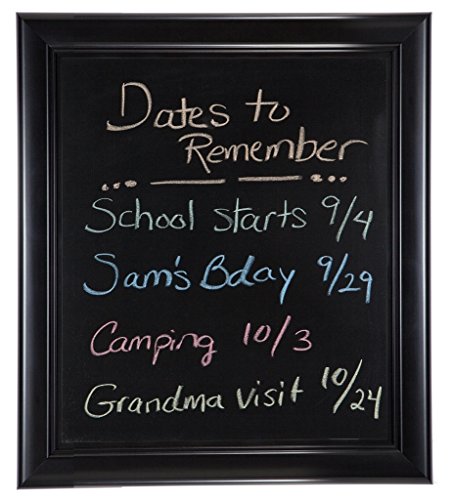 Dates to
Remember
School starts 9/4
Sam's Bday 9/29
Camping 10/3
Grandma visit 10/24